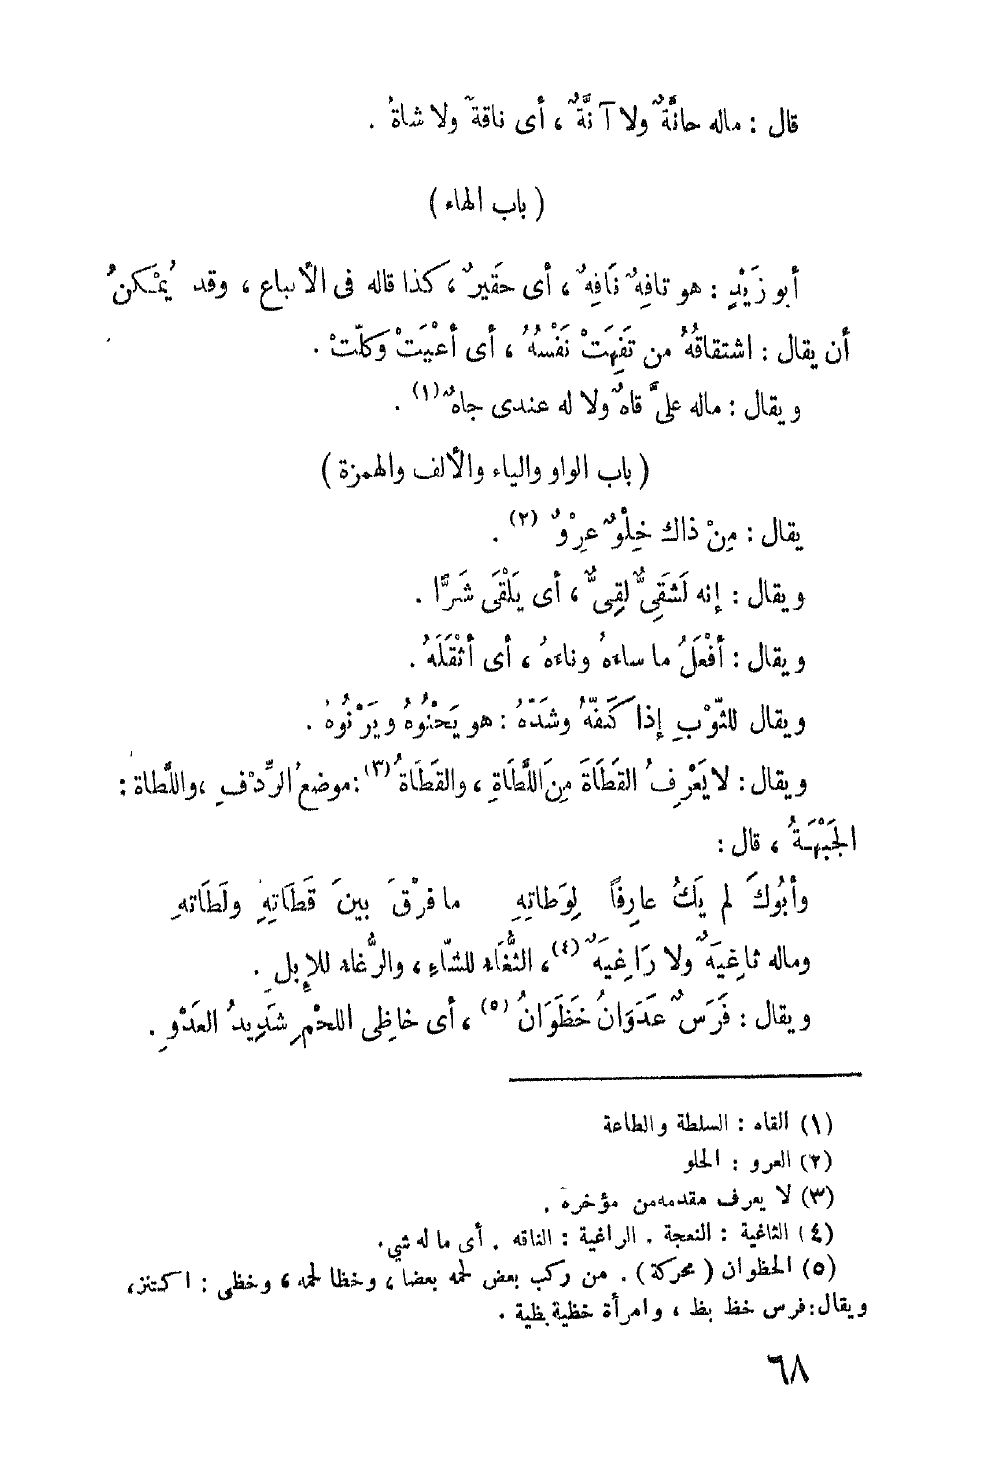 قال : ماله حانَّةٌ ولا آنَّةٌ ، أى ناقةٌ ولا شاةُ .
( باب الهاء )
أبو زَيْدٍ : هو تافِهٌ نَافِهٌ ، أى حَقَيرٌ ، كذا قاله فى الأتباع ، وقد يُمْكنُ
أن يقال : اشتقاقُهُ من تَفِهَتْ نَفْسُهُ ، أى أعْيَتْ وَكلّتْ .
ويقال : ماله علىَّ قاهٌ ولا له عندى جاهٌ (١) .
( باب الواو والياء والألف والهمزة )
يقال : مِنْ ذاك خِلْوٌ عِرْوٌ (٢) .
ويقال : إنه لَشَقِىٌّ لقِىٌّ ، أى يَلْقَى شَرًّا .
ويقال : أفْعَلُ ما ساءهُ وناءهُ ، أى أثْقَلَهُ .
ويقال للثّوْبِ إذا كَفّهُ وشَدّهُ : هو يَحْنُوهُ ويَرْنُوهُ .
ويقال : لا يَعْرِفُ القَطَاةَ مِنَ اللَّطَاةِ ، والقَطَاةُ (٣) : موضعُ الرِّدْفِ ، واللَّطاة :
الجَبْهَةُ ، قال :
وأبُوكَ لم يَكُ عارِفاً لِوَطاتِهِ ما فرْقَ بينَ قَطَاتِهِ ولَطَاتهِ
وماله ثاغِيَةٌ ولا رَاغِيَةٌ (٤) ، الثُّغَاء للشّاءِ ، والرُّغاء للإِبلِ .
ويقال : فَرَسٌ عَدَوَانُ خَظَوَانُ (٥) ، أى خاظِى اللحْمِ شَدِيدُ العَدْوِ .
(١) القاه : السلطة والطاعة
(٢) العرو : الخلو
(٣) لا يعرف مقدمه من مؤخره .
(٤) الثاغية : النعجة . الراغية : الناقه . أى ما له شيء .
(٥) الخظوان ( محركة ) . من ركب بعض لحمه بعضا ، وخظا لحمه ، وخظى : اكتنز ،
ويقال : فرس خظ بظ ، وامرأة خظية بظية .
٦٨